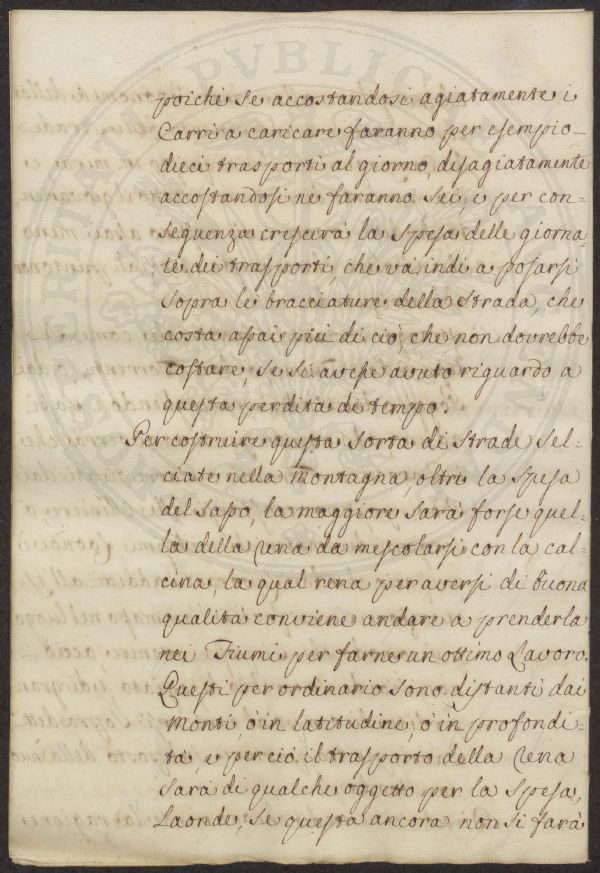 poiche se accostandosi agiatamente i
Carri a caricare faranno per esempio
dieci trasporti al giorno, disagiatamente
accostandosi ne faranno sei, e per con=
sequenza crescerà la spesa delle giorna=
te dei trasporti, che và indi a posarsi
sopra le bracciature della strada, che
costa assai più di ciò, che non dovrebbe
costare, se si avesse avuto riguardo a
questa perdita di tempo.
Per costruire questa sorta di strade sel=
ciate nella montagna, oltre la spesa
del sasso, la maggiore sarà forse quel=
la della rena da mescolarsi con la cal=
cina, la qual rena per aversi di buona
qualità conviene andare a prenderla
nei Fiumi per farne un ottimo Lavoro.
Questi per ordinario sono distanti dai
Monti ò in latitudine, ò in profondi=
tà, e perciò il trasporto della rena
sarà di qualche oggetto per la spesa,
Laonde, se questa ancora non si farà